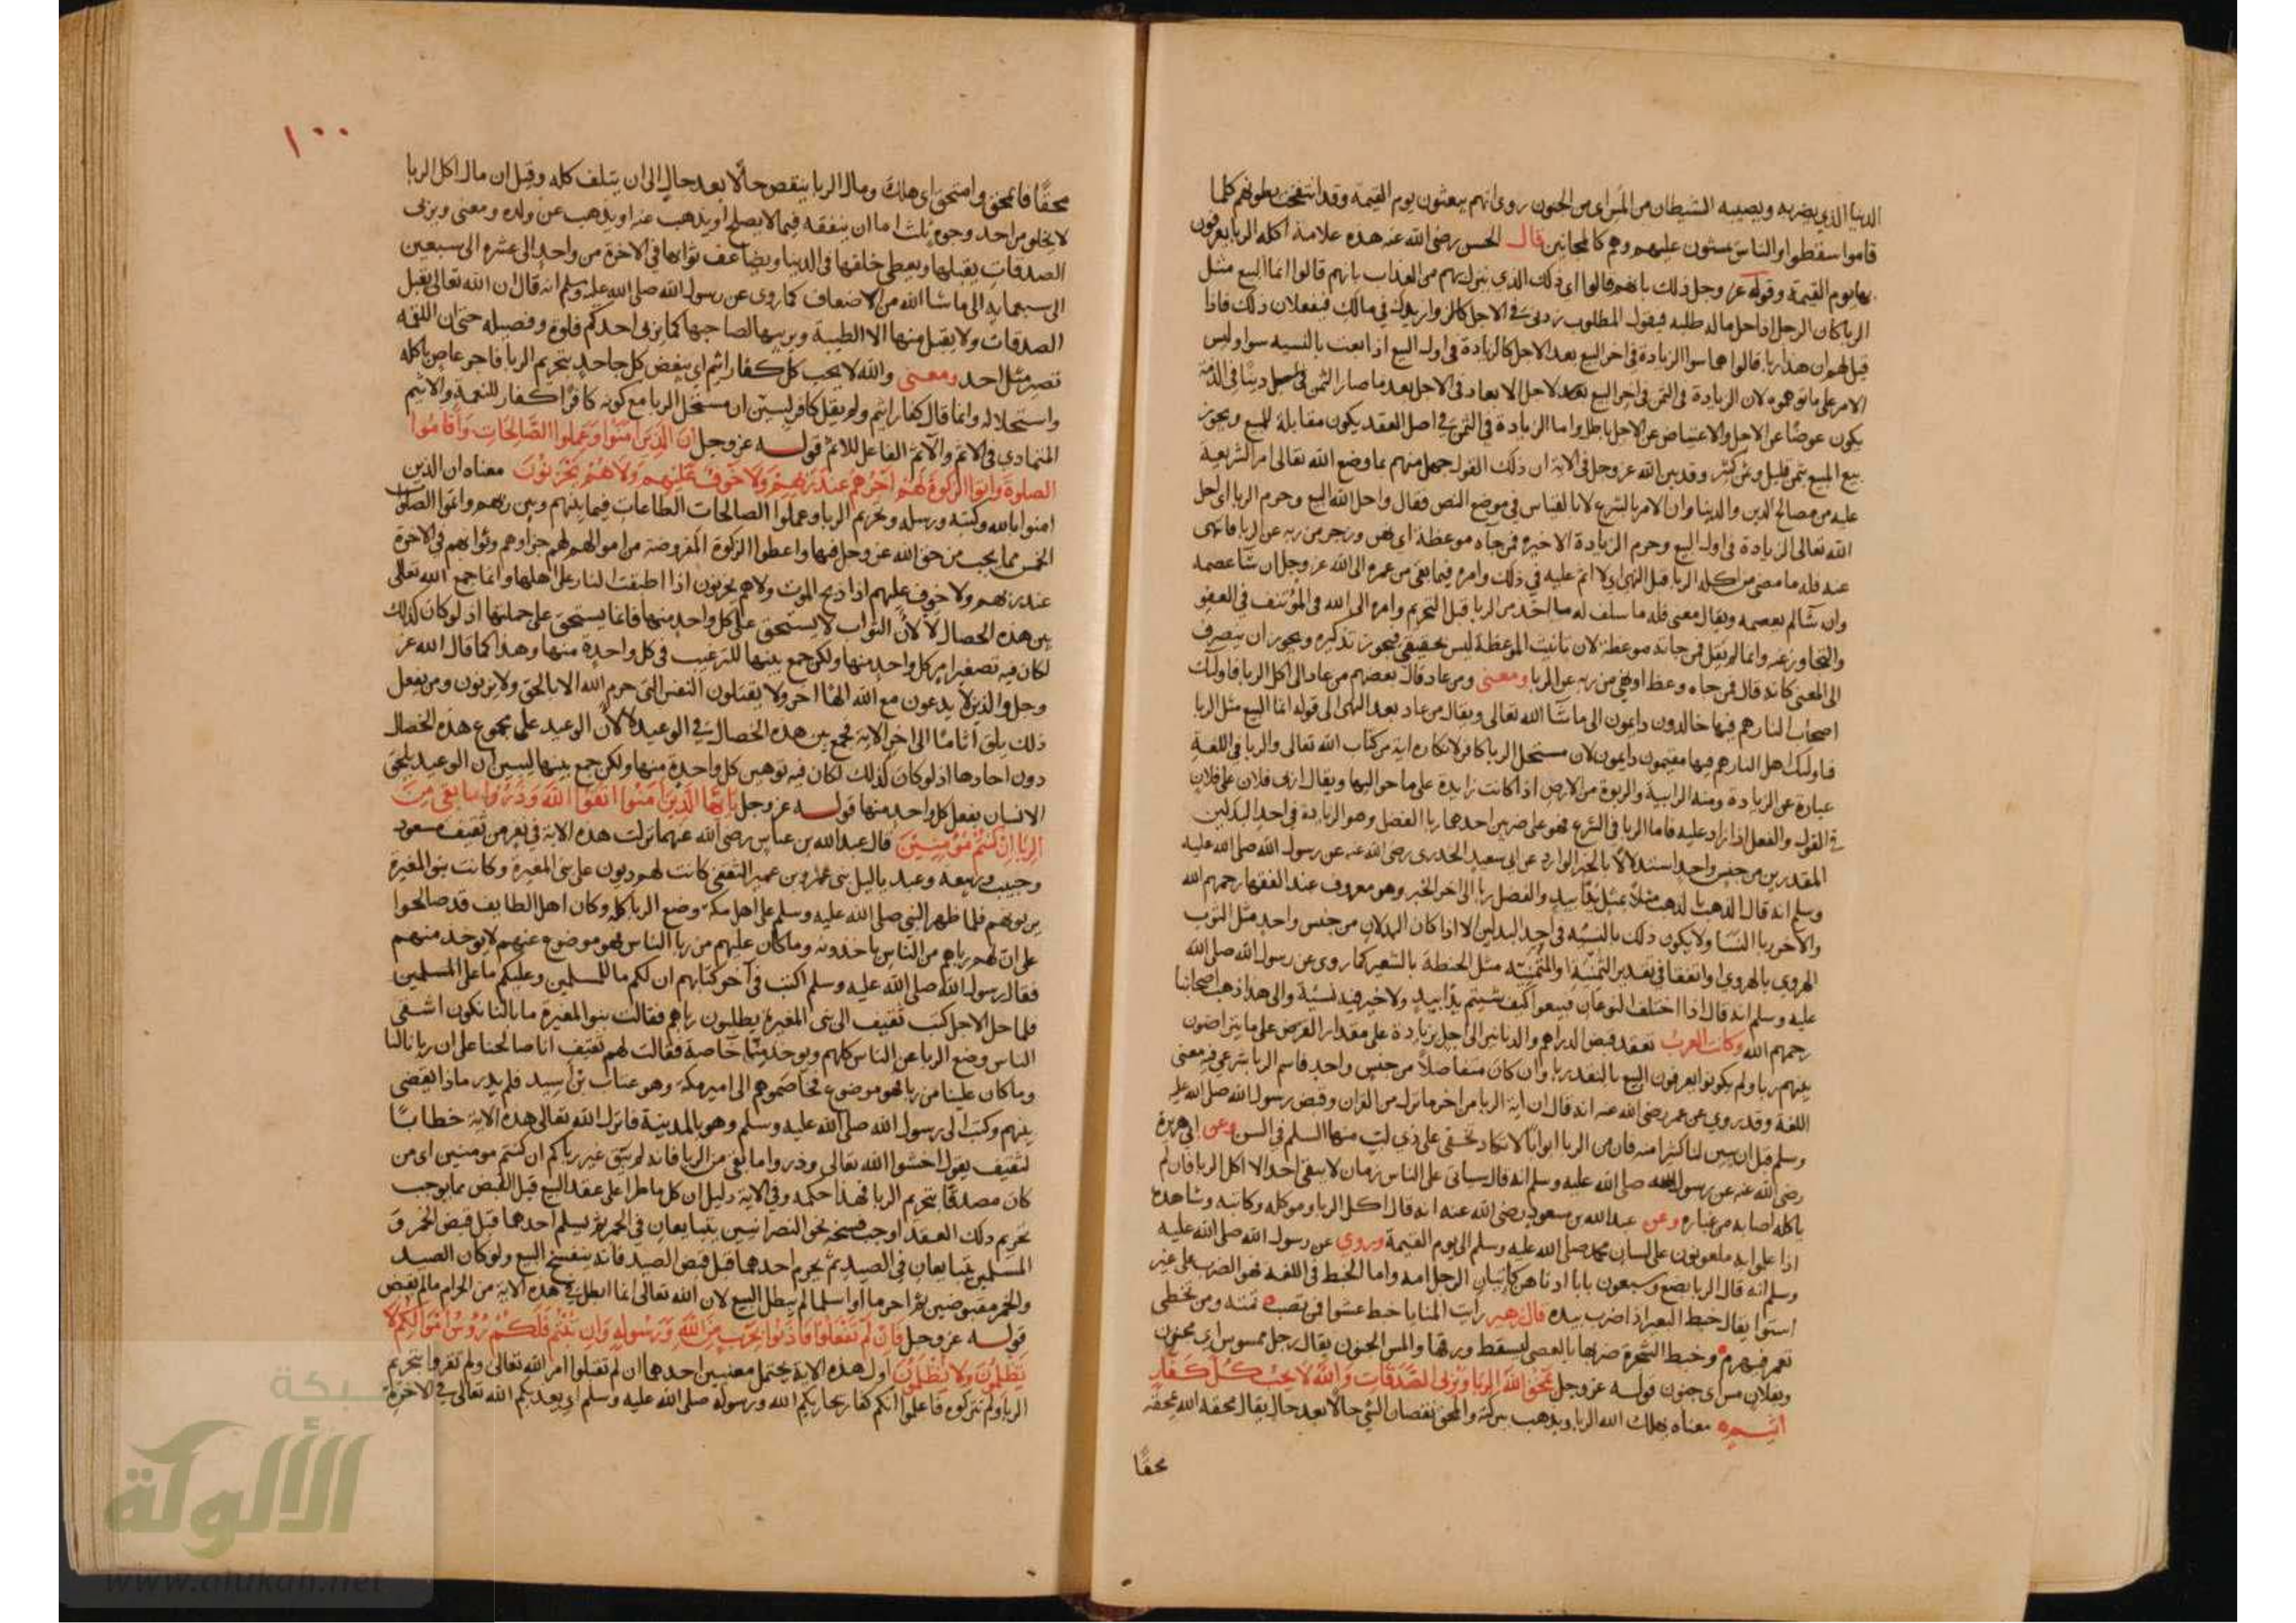 الدنيا الذي يضربه ويصيبه الشيطان من المس اى من الجنون روى انهم يبعثون يوم القيمة وقد انتفخت بطونهم كلما
قاموا سقطوا والناس يمشون عليهم وهم كالمجانين قال الحسن رضى الله عنه هذه علامة اكله الربا يعرفون
بها يوم القيمة وقوله عز وجل ذلك بانهم قالوا اى ذلك الذي نزل بهم من العذاب بانهم قالوا انما البيع مثل
الربا كان الرجل اذا حل ماله طلبه فيقول المطلوب زدنى في الاجل كالزوازيدك في مالك فيفعلان ذلك فاذا
قيل لهم ان هذا ربا قالوا هما سوا الزيادة في اخر البيع بعد الاجل كالزيادة في اول البيع اذا بعت بالنسيه سوا وليس
الامر على ما توهموه لان الزيادة في الثمن في اخر البيع بعد لاجل الابعاد في الاجل بعد ما صار الثمن دينا في الذمة
يكون عوضا عن الاجل والاعتياض عن الاجل باطل واما الزيادة في الثمن في اصل العقد يكون مقابلة للمبيع ويجوز
بيع المبيع بثمن قليل وثمن كثير وقد بين الله عز وجل في الاية ان ذلك القول جهل منهم بما وضع الله تعالى امر الشريعة
عليه من مصالح الدين والدنيا وان الامر بالشرع لا بالقياس في موضع النص فقال واحل الله البيع وحرم الربا اى احل
الله تعالى الزيادة في اول البيع وحرم الزيادة الاخيره فمن جاه موعظة اى نهى وزجر من ربه عن الربا فانتهى
عنه فله ما مضى من اكله الربا قبل النهى اى لا اثم عليه في ذلك وامره فيما بقى من عمره الى الله عز وجل ان شآ عصمه
وان شآ لم يعصمه ويقال معنى فله ما سلف له ما اخذ من الربا قبل التحريم وامره الى الله في المؤتنف في العفو
والتجاوز عنه وانما لم يقل فمن جاته موعظة لان تانيث الموعظة ليس بحقيقي فيجوز تذكيره ويجوز ان ينصرف
الى المعنى كانه قال فمن جاه وعظ او نهي من ربه عن الربا ومعنى ومن عاد قال بعضهم من عاد الى اكل الربا فاولئك
اصحاب النار هم فيها خالدون دايمون الى ما شآ الله تعالى ويقال من عاد بعد النهى الى قوله انما البيع مثل الربا
فاولئك اهل النار هم فيها مقيمون دايمون لان مستحل الربا كافر لانكاره اية من كتاب الله تعالى والربا في اللغة
عبارة عن الزيادة ومنه الرابية والربوة من الارض اذا كانت زايدة على ما حواليها ويقال اربى فلان على فلان
في القول والفعل اذا زاد عليه فاما الربا في الشرع فهو على ضربين احدهما ربا الفضل وهو الزيادة في احد البدلين
المقدرين من جنس واحد استدلالا بالخبر الوارد عن ابى سعيد الخدرى رضى الله عنه عن رسول الله صلى الله عليه
وسلم انه قال الذهب بالذهب مثلا بمثل يدا بيد والفضل ربا الى اخر الخبر وهو معروف عند الفقها رحمهم الله
والاخر ربا النسآ ولا يكون ذلك بالنسيه في احد البدلين الا اذا كان البدلان من جنس واحد مثل الثوب
الهروى بالهروى او اتفقا في تقدير الثمنية او المثمنية مثل الحنطة بالشعير كما روى عن رسول الله صلى الله
عليه وسلم انه قال اذا اختلف النوعان فبيعوا كيف شيتم يدا بيد ولا خير فيه نسيئة والى هذا ذهب اصحابنا
رحمهم الله وكانت العرب تعقد قبض الدراهم والدنانير الى اجل بزيادة على مقدار القرض على ما يتراضون
بينهم ربا ولم يكونوا يعرفون البيع بالنقد ربا وان كان متفاضلا من جنس واحد فاسم الربا شرعى فيه معنى
اللغة وقد روي عن عمر رضى الله عنه انه قال ان اية الربا من اخر ما نزل من القران وقبض رسول الله صلى الله عليه
وسلم قبل ان يبين لنا كثيرا منه فان من الربا ابوابا لا تكاد تخفى على ذي لب منها السلم في السن وعن ابى هريرة
رضى الله عنه عن رسول الله صلى الله عليه وسلم انه قال سياتى على الناس زمان لا يبقى احد الا اكل الربا فان لم
ياكله اصابه من غباره وعن عبد الله بن مسعود رضى الله عنه انه قال اكل الربا وموكله وكاتبه وشاهده
اذا علموا به ملعونون على لسان محمد صلى الله عليه وسلم الى يوم القيمة وروي عن رسول الله صلى الله عليه
وسلم انه قال الربا بضع وسبعون بابا ادناها كاتيان الرجل امه واما الخبط في اللغة فهو الضرب على غير
استوا يقال خبط البعير اذا ضرب بيده قال زهير رأيت المنايا خبط عشوا من تصب تمته ومن تخطى
يعمر فيهرم وخبط الشجرة ضربها بالعصى ليسقط ورقها والمس الجنون يقال رجل ممسوس اى مجنون
وبفلان مس اى جنون قوله عز وجل يمحق الله الربا ويربى الصدقات والله لا يحب كل كفار
اثيم معناه يهلك الله الربا ويذهب ببركته والمحق نقصان الشي حالا بعد حال يقال محقه الله يمحقه
محقا
١٠٠
محقا فانمحق وامتحق اى هلك ومال الربا ينقص حالا بعد حال الى ان يتلف كله وقيل ان مال اكل الربا
لا يخلو من احد وجوه ثلث اما ان ينفقه فيما لا يصلح او يذهب عنه او يذهب عن ولده ومعنى ويربى
الصدقات يقبلها ويعطى خلفها في الدنيا ويضاعف ثوابها في الاخرة من واحد الى عشره الى سبعين
الى سبعمايه الى ما شا الله من الاضعاف كما روى عن رسول الله صلى الله عليه وسلم انه قال ان الله تعالى يقبل
الصدقات ولا يقبل منها الا الطيبة ويربيها لصاحبها كما يربى احدكم فلوه وفصيله حتى ان اللقمه
تصير مثل احد ومعنى والله لا يحب كل كفار اثيم اى يبغض كل جاحد بتحريم الربا فاجر عاص باكله
واستحلاله وانما قال كفار اثيم ولم يقل كافر ليبين ان مستحل الربا مع كونه كافرا كفار للنعمة والاثيم
المتمادي في الاثم والآثم الفاعل للاثم قوله عز وجل ان الذين امنوا وعملوا الصالحات واقاموا
الصلوة واتوا الزكوة لهم اجرهم عند ربهم ولا خوف عليهم ولا هم يحزنون معناه ان الذين
امنوا بالله وكتبه ورسله وتحريم الربا وعملوا الصالحات الطاعات فيما بينهم وبين ربهم واتموا الصلوات
الخمس بما يجب من حق الله عز وجل فيها واعطوا الزكوة المفروضة من اموالهم لهم جزاوهم وثوابهم في الاخرة
عند ربهم ولا خوف عليهم اذا ذبح الموت ولا هم يحزنون اذا اطبقت النار على اهلها وانما جمع الله تعالى
بين هذه الخصال لا لان الثواب لا يستحق على كل واحد منها فانما يستحق على جملتها اذ لو كان كذلك
لكان فيه تصغير امر كل واحد منها ولكن جمع بينها للترغيب في كل واحدة منها وهذا كما قال الله عز
وجل والذين لا يدعون مع الله الها اخر ولا يقتلون النفس التى حرم الله الا بالحق ولا يزنون ومن يفعل
ذلك يلق اثاما الى اخر الاية فجمع بين هذه الخصال في الوعيد لا لان الوعيد على مجموع هذه الخصال
دون احادها اذ لو كان كذلك لكان فيه توهين كل واحدة منها ولكن جمع بينها ليبين ان الوعيد يلحق
الانسان بفعل كل واحد منها قوله عز وجل يايها الذين امنوا اتقوا الله وذروا ما بقى من
الربا ان كنتم مؤمنين قال عبد الله بن عباس رضى الله عنهما نزلت هذه الاية في نفر من ثقيف مسعود
وحبيب وربيعه وعبد ياليل بنى عمرو بن عمير الثقفى كانت لهم ديون على بنى المغيرة وكانت بنو المغيرة
يربونهم فلما ظهر النبي صلى الله عليه وسلم على اهل مكة وضع الربا كله وكان اهل الطايف قد صالحوا
على ان لهم رباهم من الناس ياخذونه وما كان عليهم من ربا الناس فهو موضوع عنهم لا يوخذ منهم
فقال رسول الله صلى الله عليه وسلم اكتب في آخر كتابهم ان لكم ما للمسلمين وعليكم ما على المسلمين
فلما حل الاجل كتب ثقيف الى بنى المغيرة يطلبون رباهم فقالت بنو المغيرة ما بالنا نكون اشقى
الناس وضع الربا عن الناس كلهم ويوخذ منا خاصة فقالت لهم ثقيف انا صالحنا على ان ربانا لنا
وما كان علينا من ربا فهو موضوع فخاصموهم الى امير مكة وهو عتاب بن اسيد فلم يدر ماذا يقضى
بينهم وكتب الى رسول الله صلى الله عليه وسلم وهو بالمدينة فانزل الله تعالى هذه الاية خطابا
لثقيف يقول اخشوا الله تعالى وذروا ما بقى من الربا فانه لم يبق غير رباكم ان كنتم مومنين اى من
كان مصدقا بتحريم الربا فهذا حكمه وفي الاية دليل ان كل ما طرا على عقد البيع قبل القبض مما يوجب
تحريم ذلك العقد اوجب فسخه نحو النصرانيين يتبايعان في الخمر ثم يسلم احدهما قبل قبض الخمر و
المسلمين يتبايعان في الصيد ثم يحرم احدهما قبل قبض الصيد فانه ينفسخ البيع ولو كان الصيد
والخمر مقبوضين ثم احرما او اسلما لم يبطل البيع لان الله تعالى انما ابطل في هذه الاية من الحرام ما لم يقبض
قوله عز وجل فان لم تفعلوا فاذنوا بحرب من الله ورسوله وان تبتم فلكم رؤس اموالكم لا
تظلمون ولا تظلمون اول هذه الاية يحتمل معنيين احدهما ان لم تقبلوا امر الله تعالى ولم تقروا بتحريم
الربا ولم تتركوه فاعلموا انكم كفار يحاربكم الله ورسوله صلى الله عليه وسلم اى يعذبكم الله تعالى في الاخرة
شبكة
الألوكة
www.alukah.net